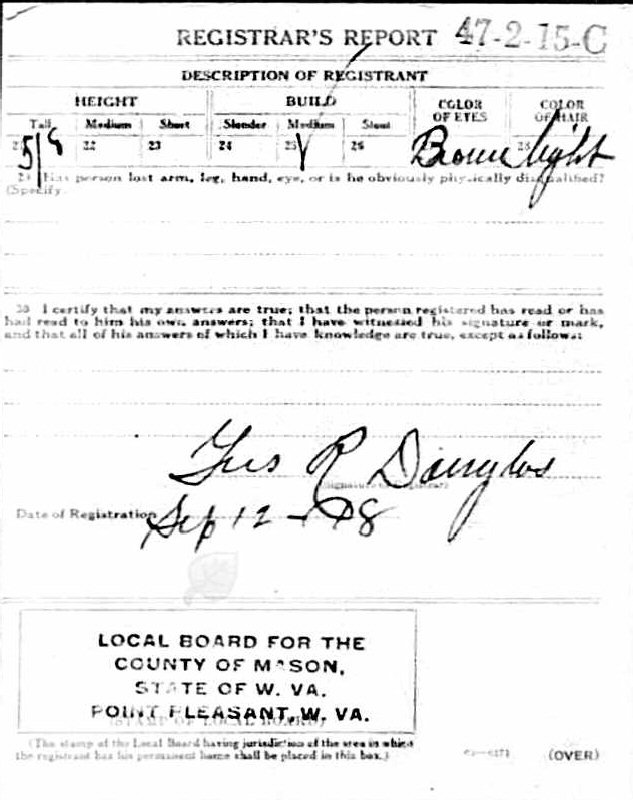 REGISTRAR'S REPORT 47-2-15-C
DESCRIPTION OF REGISTRANT
HEIGHT BUILD COLOR OF EYES COLOR OF HAIR
Tall Medium Short Slender Medium Stout
21 22 23 24 25 26 28
5/8 Brown light
29 Has person lost arm, leg, hand, eye, or is he obviously physically disqualified?
(Specify.
30 I certify that my answers are true; that the person registered has read or has
had read to him his own answers; that I have witnessed his signature or mark,
and that all of his answers of which I have knowledge are true, except as follows:
R Douglas
(Signature of Registrar)
Date of Registration Sep 12 - 18
LOCAL BOARD FOR THE
COUNTY OF MASON,
STATE OF W. VA.
POINT PLEASANT, W. VA.
(STAMP OF LOCAL BOARD)
(The stamp of the Local Board having jurisdiction of the area in which
the registrant has his permanent home shall be placed in this box.)
(OVER)